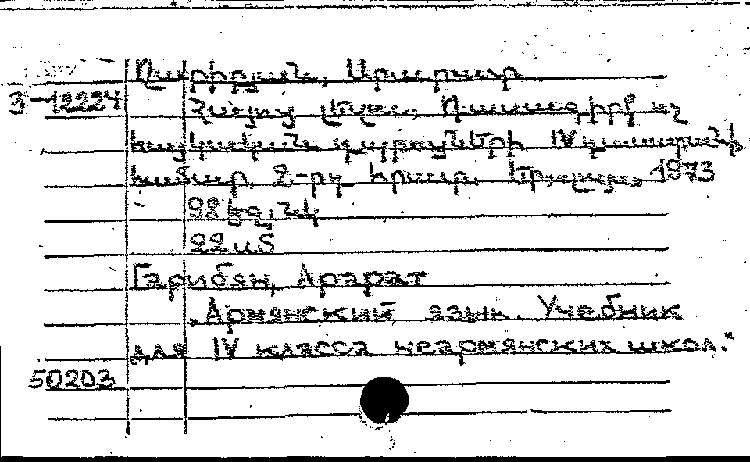 Ղարիբյան, Արարատ
3-12224
Հայոց լեզու. Դասագիրք ոչ
հայկական դպրոցների IV դասարանի
համար. 2-րդ հրատ. Եր., 1973
98 էջ, նկ
22 սմ
Гарибян, Арарат
„Армянский язык. Учебник
для IV класса неармянских школ."
50203